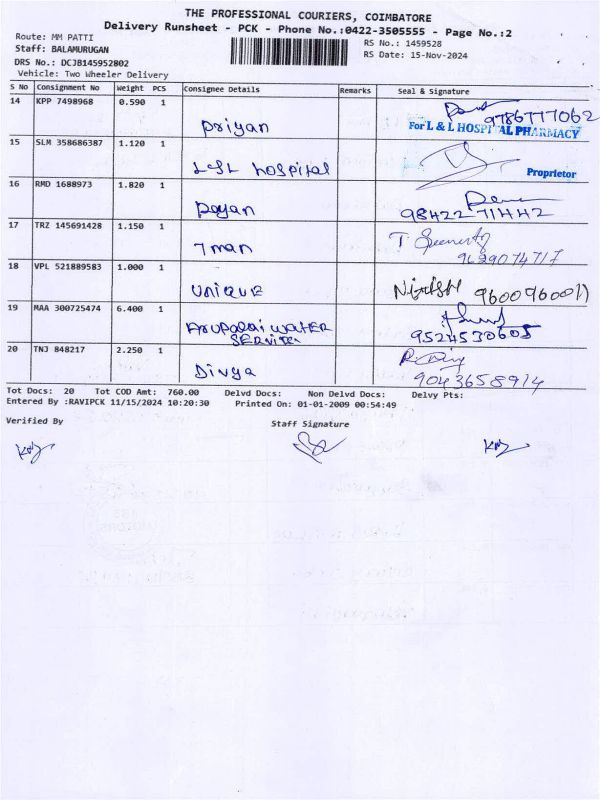 THE PROFESSIONAL COURIERS, COIMBATORE
Delivery Runsheet - PCK - Phone No.:0422-3505555 - Page No.:2
Route: MM PATTI
RS No.: 1459528
Staff: BALAMURUGAN
RS Date: 15-Nov-2024
DRS No.: DCJB145952802
Vehicle: Two Wheeler Delivery
S No Consignment No Weight PCS Consignee Details Remarks Seal & Signature
14 KPP 7498968 0.590 1
priyan 9786777062
For L & L HOSPITAL PHARMACY
15 SLM 358686387 1.120 1
L&L hospital
Proprietor
16 RMD 1688973 1.820 1
98422 71442
17 TRZ 145691428 1.150 1
7man
9629074717
18 VPL 521889583 1.000 1
UNIQUE Nitish 9600960011
19 MAA 300725474 6.400 1
WATER
9524530605
20 TNJ 848217 2.250 1
Divya
9043658914
Tot Docs: 20 Tot COD Amt: 760.00 Delvd Docs: Non Delvd Docs: Delvy Pts:
Entered By :RAVIPCK 11/15/2024 10:20:30 Printed On: 01-01-2009 00:54:49
Verified By Staff Signature